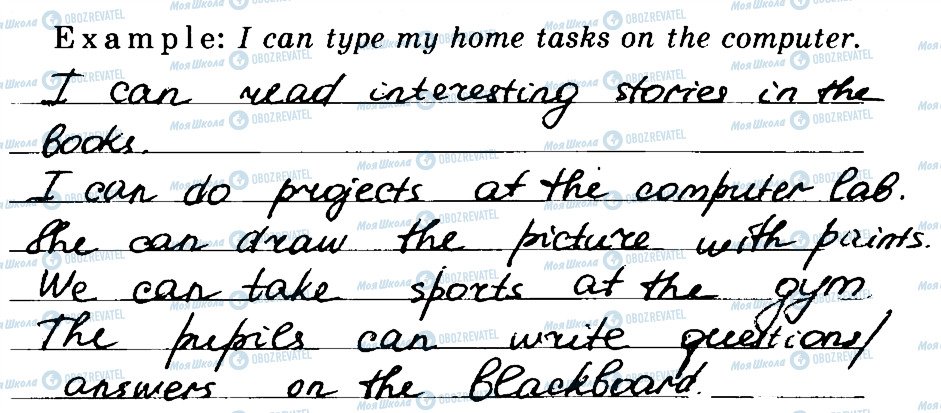 Example: I can type my home tasks on the computer.
I can read interesting stories in the
books.
I can do projects at the computer lab.
She can draw the picture with paints.
We can take sports at the gym.
The pupils can write questions/
answers on the blackboard.